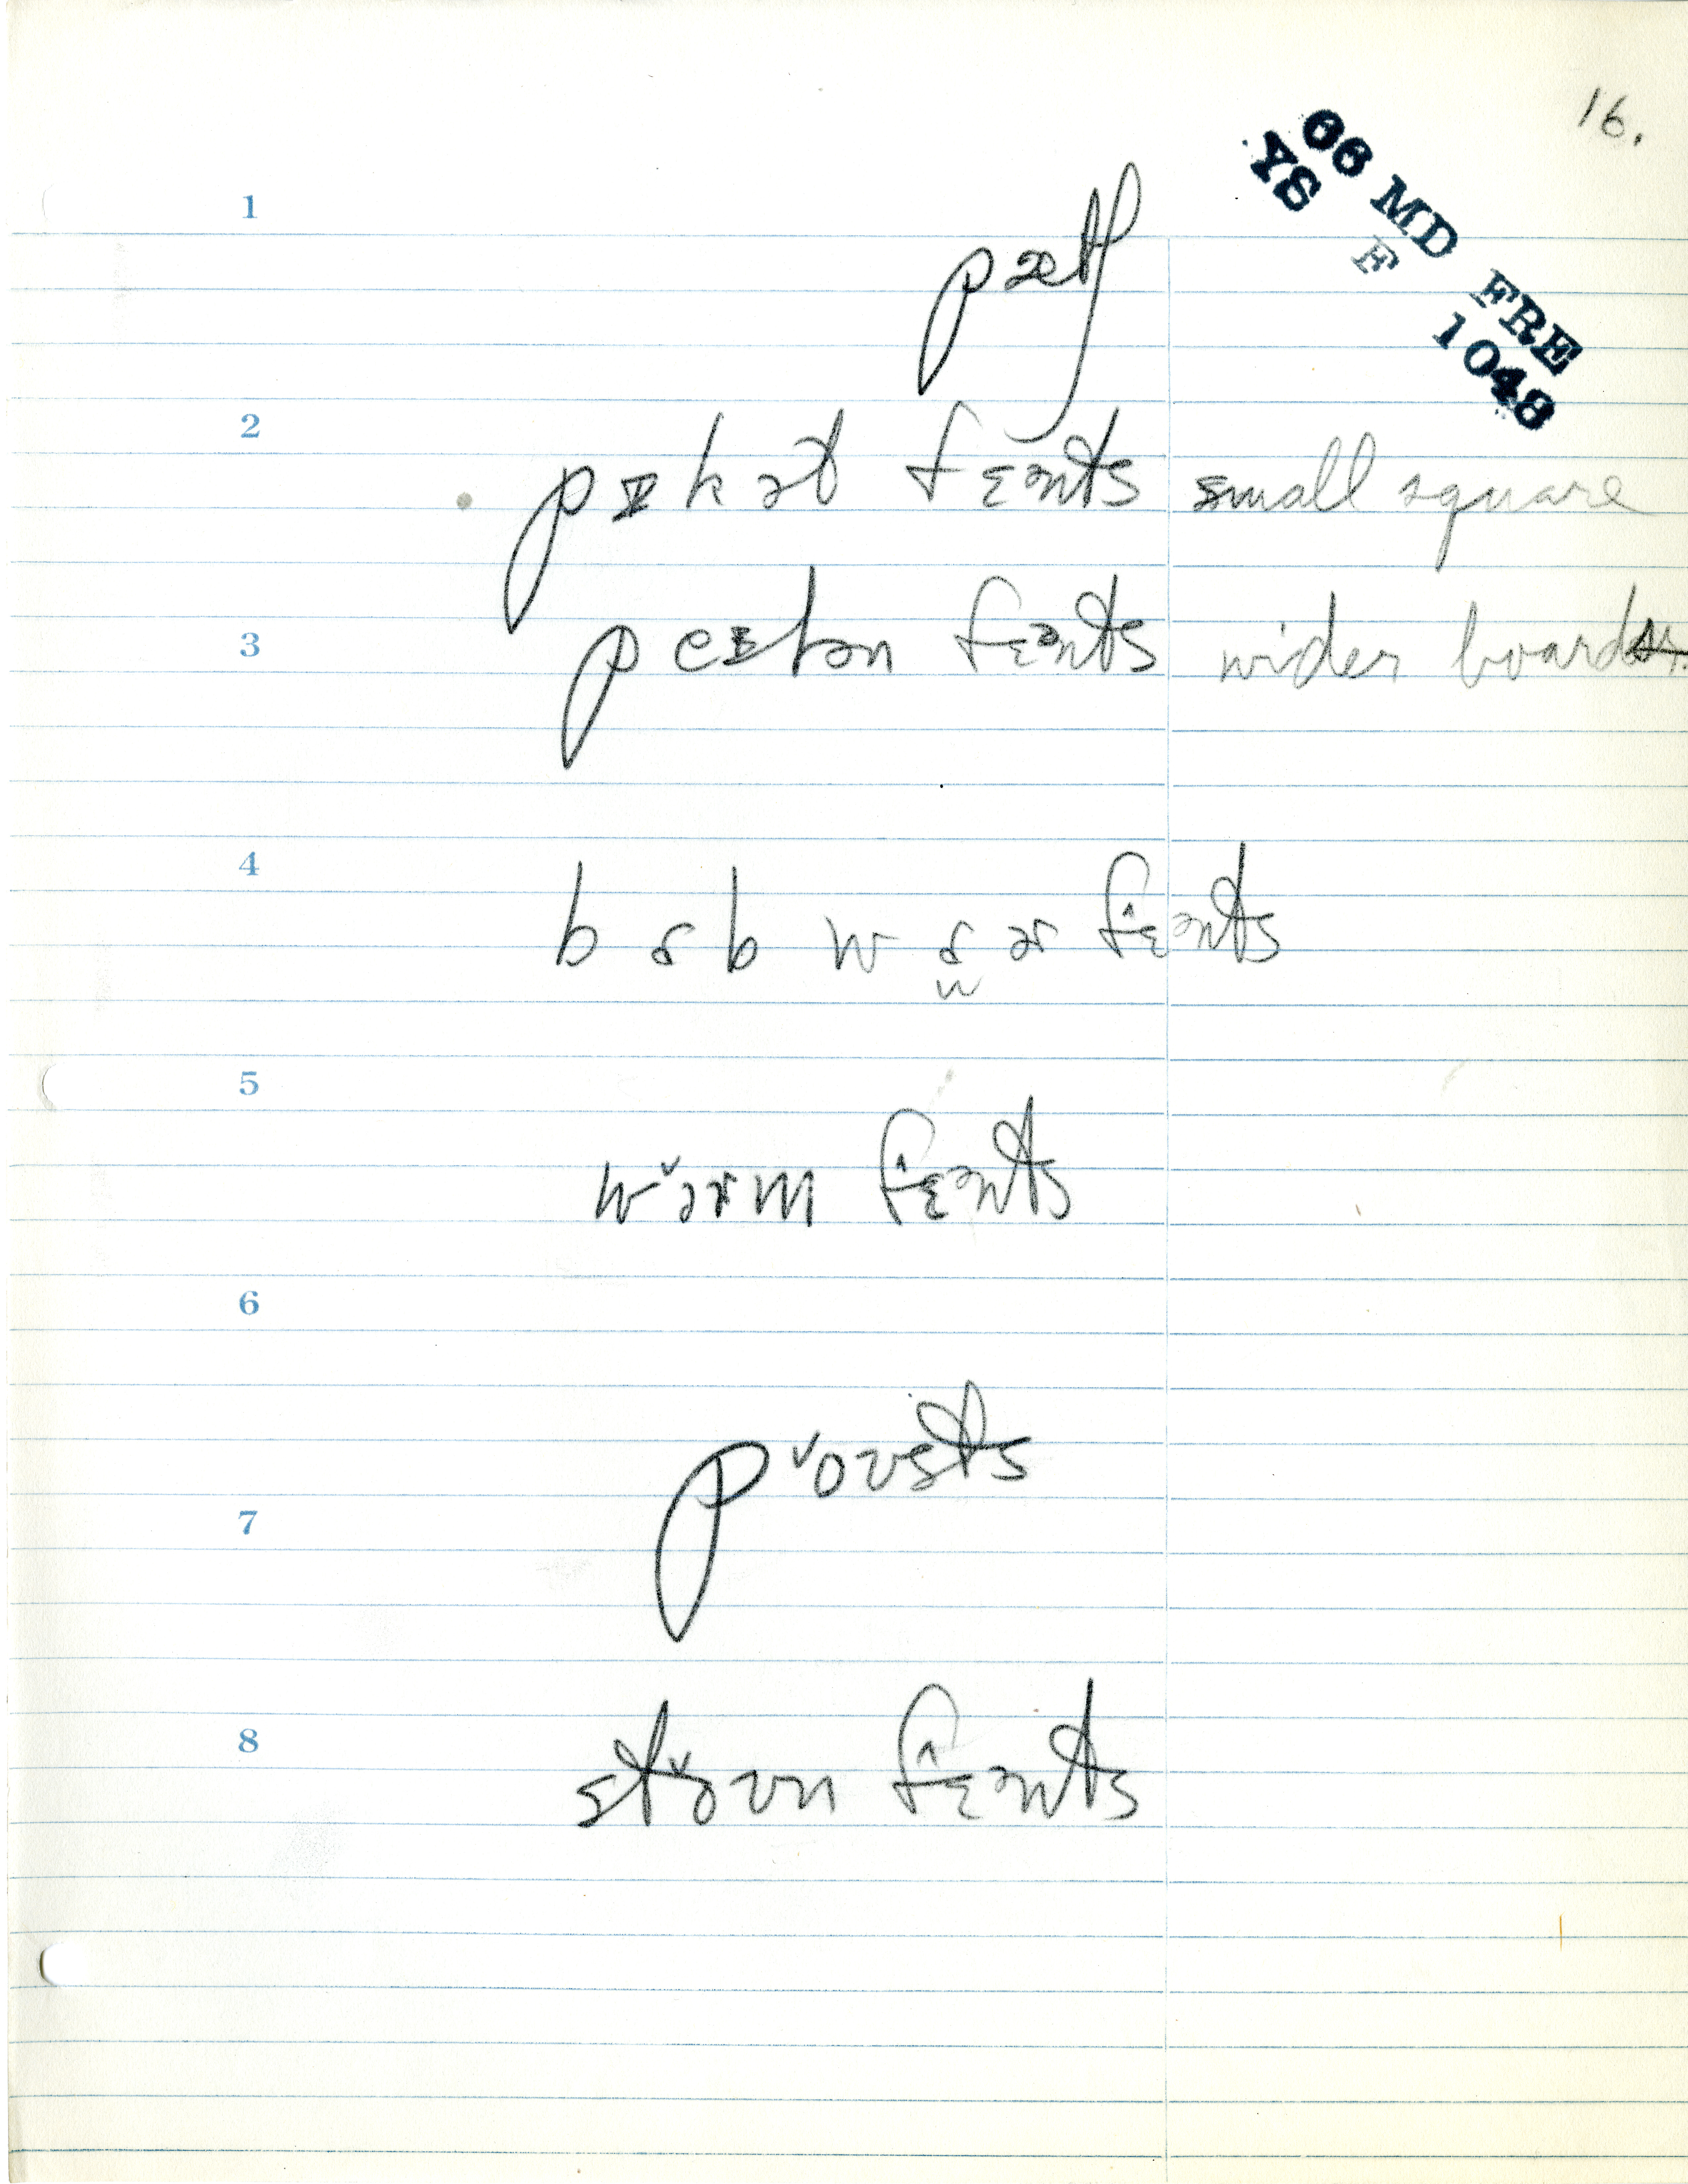 16.
06 MD FRE
YS F 1048
1
pæθ
2
pɪkət fɛənts small square
3
peɪlən fɛənts wider boards
4
bɑbwɑər fɛənts
5
wɔərm fɛənts
6
poʊsts
7
8
stoʊn fɛənts